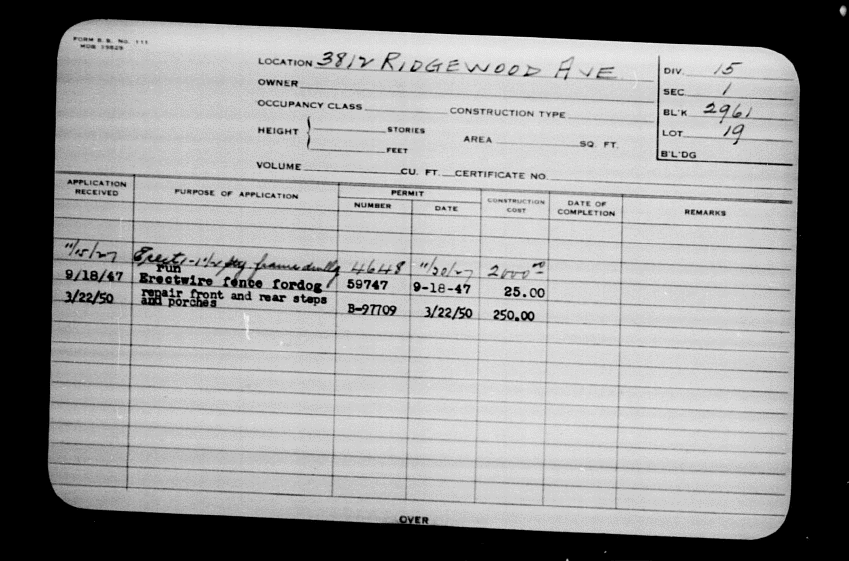 FORM B. E. No. 111
MDB 19829
LOCATION 3812 RIDGEWOOD AVE
OWNER
OCCUPANCY CLASS CONSTRUCTION TYPE
HEIGHT STORIES
FEET
AREA SQ. FT.
VOLUME CU. FT. CERTIFICATE NO.
DIV. 15
SEC. 1
BL'K 2961
LOT 19
B'L'DG
APPLICATION RECEIVED PURPOSE OF APPLICATION PERMIT NUMBER DATE CONSTRUCTION COST DATE OF COMPLETION REMARKS
11/15/27 Erect 1-1½ sty frame dwllg 4648 11/20/27 2000.00
run
9/18/47 Erectwire fence fordog 59747 9-18-47 25.00
3/22/50 repair front and rear steps
and porches B-97709 3/22/50 250.00
OVER